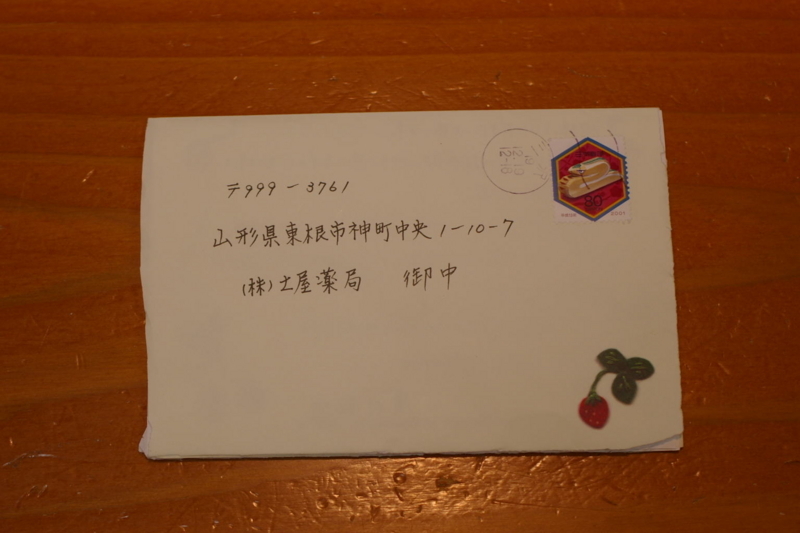 〒999-3761
山形県東根市神町中央1-10-7
(株)土屋薬局 御中
80